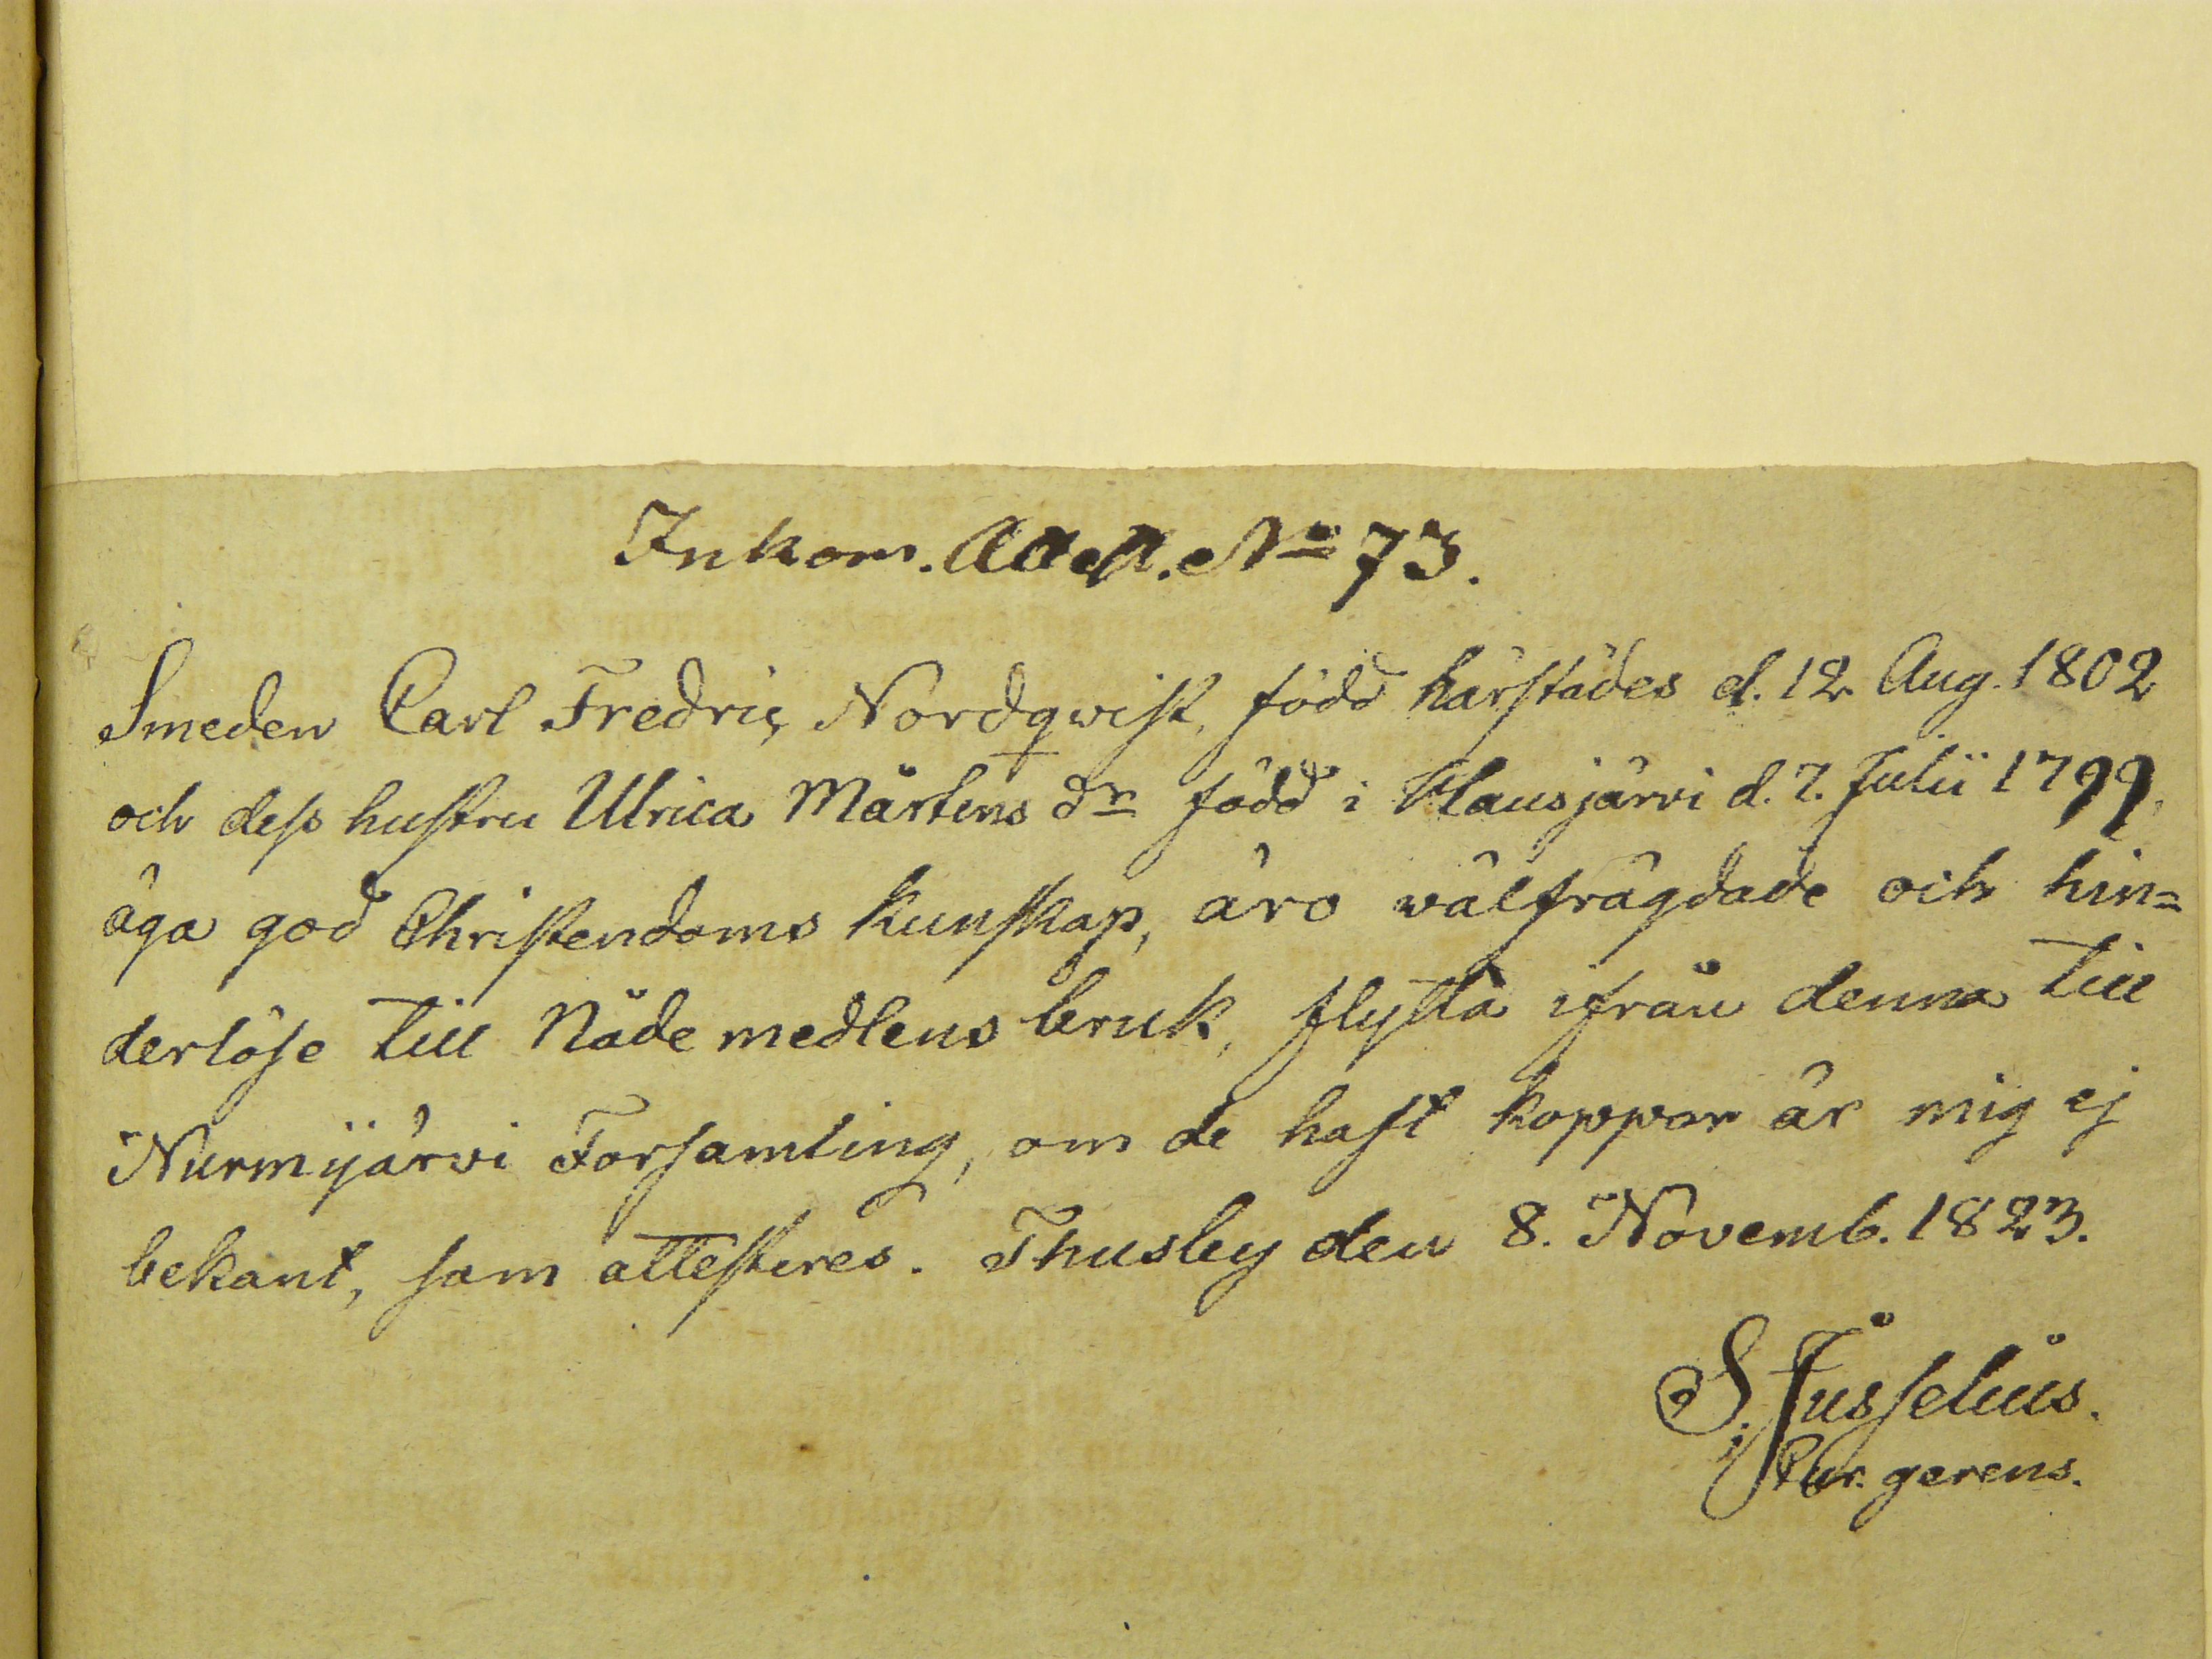 Inkom. Attest. No 73.
Smeden Carl Fredric Nordqwist, född härstädes d. 12 Aug. 1802
och dess hustru Ulrica Mårtens dr född i Hausjärvi d. 7. Julii 1799,
äga god Christendoms kunskap, äro wälfrägdade och hin=
derlöse till Nåde medlens bruk, flytta ifrån denna till
Nurmijärvi Församling, om de haft koppor är mig ej
bekant, som attesteres. Thusby den 8. Novemb. 1823.
S. Jusselius.
gerens.